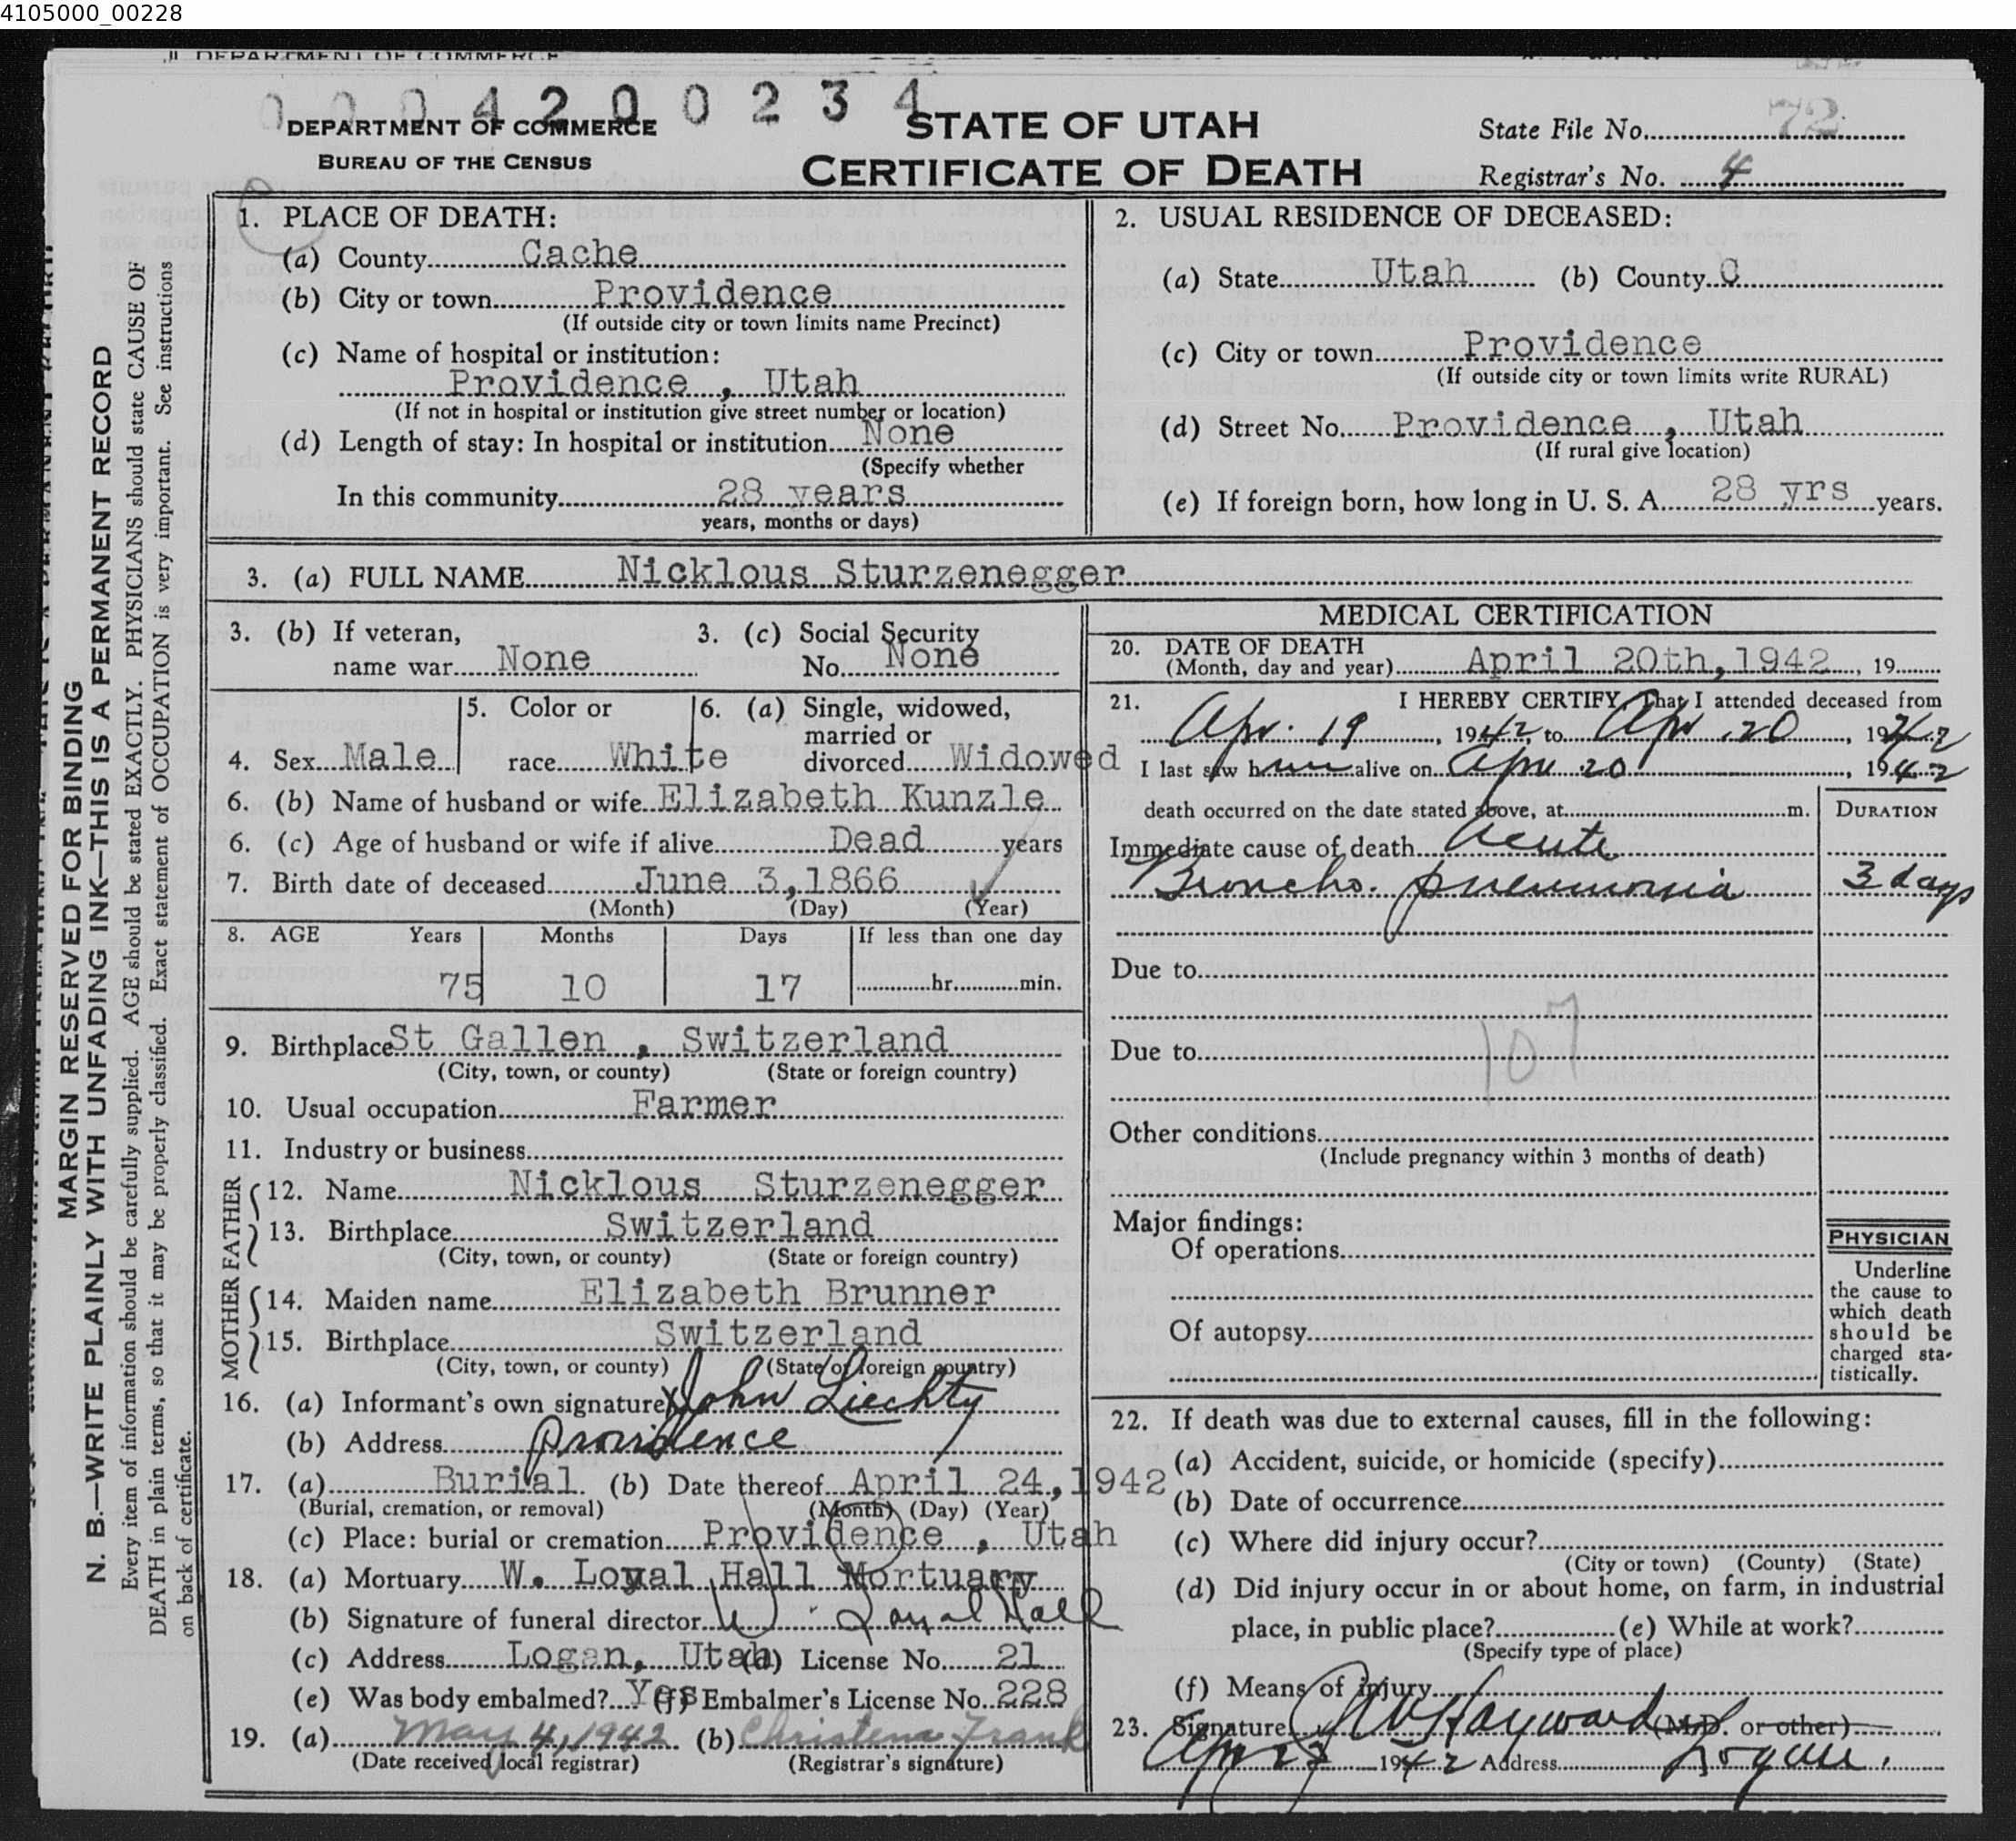 4105000_00228
DEPARTMENT OF COMMERCE
0004200234
DEPARTMENT OF COMMERCE
BUREAU OF THE CENSUS
STATE OF UTAH
CERTIFICATE OF DEATH
State File No. 72
Registrar's No. 4
MARGIN RESERVED FOR BINDING
N. B.—WRITE PLAINLY WITH UNFADING INK—THIS IS A PERMANENT RECORD
Every item of information should be carefully supplied. AGE should be stated EXACTLY. PHYSICIANS should state CAUSE OF
DEATH in plain terms, so that it may be properly classified. Exact statement of OCCUPATION is very important. See instructions
on back of certificate.
1. PLACE OF DEATH:
(a) County Cache
(b) City or town Providence
(If outside city or town limits name Precinct)
(c) Name of hospital or institution:
Providence , Utah
(If not in hospital or institution give street number or location)
(d) Length of stay: In hospital or institution None
(Specify whether
In this community 28 years
years, months or days)
2. USUAL RESIDENCE OF DECEASED:
(a) State Utah (b) County C
(c) City or town Providence
(If outside city or town limits write RURAL)
(d) Street No. Providence , Utah
(If rural give location)
(e) If foreign born, how long in U. S. A. 28 yrs years.
3. (a) FULL NAME Nicklous Sturzenegger
3. (b) If veteran,
name war None
3. (c) Social Security
No. None
4. Sex Male
5. Color or
race White
6. (a) Single, widowed,
married or
divorced Widowed
6. (b) Name of husband or wife Elizabeth Kunzle
6. (c) Age of husband or wife if alive Dead years
7. Birth date of deceased June 3, 1866
(Month) (Day) (Year)
8. AGE Years Months Days If less than one day
75 10 17 hr. min.
9. Birthplace St Gallen , Switzerland
(City, town, or county) (State or foreign country)
10. Usual occupation Farmer
11. Industry or business
FATHER
12. Name Nicklous Sturzenegger
13. Birthplace Switzerland
(City, town, or county) (State or foreign country)
MOTHER
14. Maiden name Elizabeth Brunner
15. Birthplace Switzerland
(City, town, or county) (State or foreign country)
16. (a) Informant's own signature X John Liechty
(b) Address Providence
17. (a) Burial (b) Date thereof April 24, 1942
(Burial, cremation, or removal) (Month) (Day) (Year)
(c) Place: burial or cremation Providence , Utah
18. (a) Mortuary W. Loyal Hall Mortuary
(b) Signature of funeral director W. Loyal Hall
(c) Address Logan, Utah (d) License No. 21
(e) Was body embalmed? Yes (f) Embalmer's License No. 228
19. (a) May 4, 1942 (b) Christena Frank
(Date received local registrar) (Registrar's signature)
MEDICAL CERTIFICATION
20. DATE OF DEATH
(Month, day and year) April 20th, 1942, 19
21. I HEREBY CERTIFY, That I attended deceased from
Apr. 19, 1942, to Apr. 20, 1942
I last saw him alive on Apr 20, 1942
death occurred on the date stated above, at m.
DURATION
Immediate cause of death Acute
Broncho. pneumonia 3 days
Due to
107
Due to
Other conditions
(Include pregnancy within 3 months of death)
Major findings:
Of operations
Of autopsy
PHYSICIAN
Underline
the cause to
which death
should be
charged sta-
tistically.
22. If death was due to external causes, fill in the following:
(a) Accident, suicide, or homicide (specify)
(b) Date of occurrence
(c) Where did injury occur?
(City or town) (County) (State)
(d) Did injury occur in or about home, on farm, in industrial
place, in public place? (e) While at work?
(Specify type of place)
(f) Means of injury
23. Signature Hayward (M.D. or other)
1942 Address Logan.